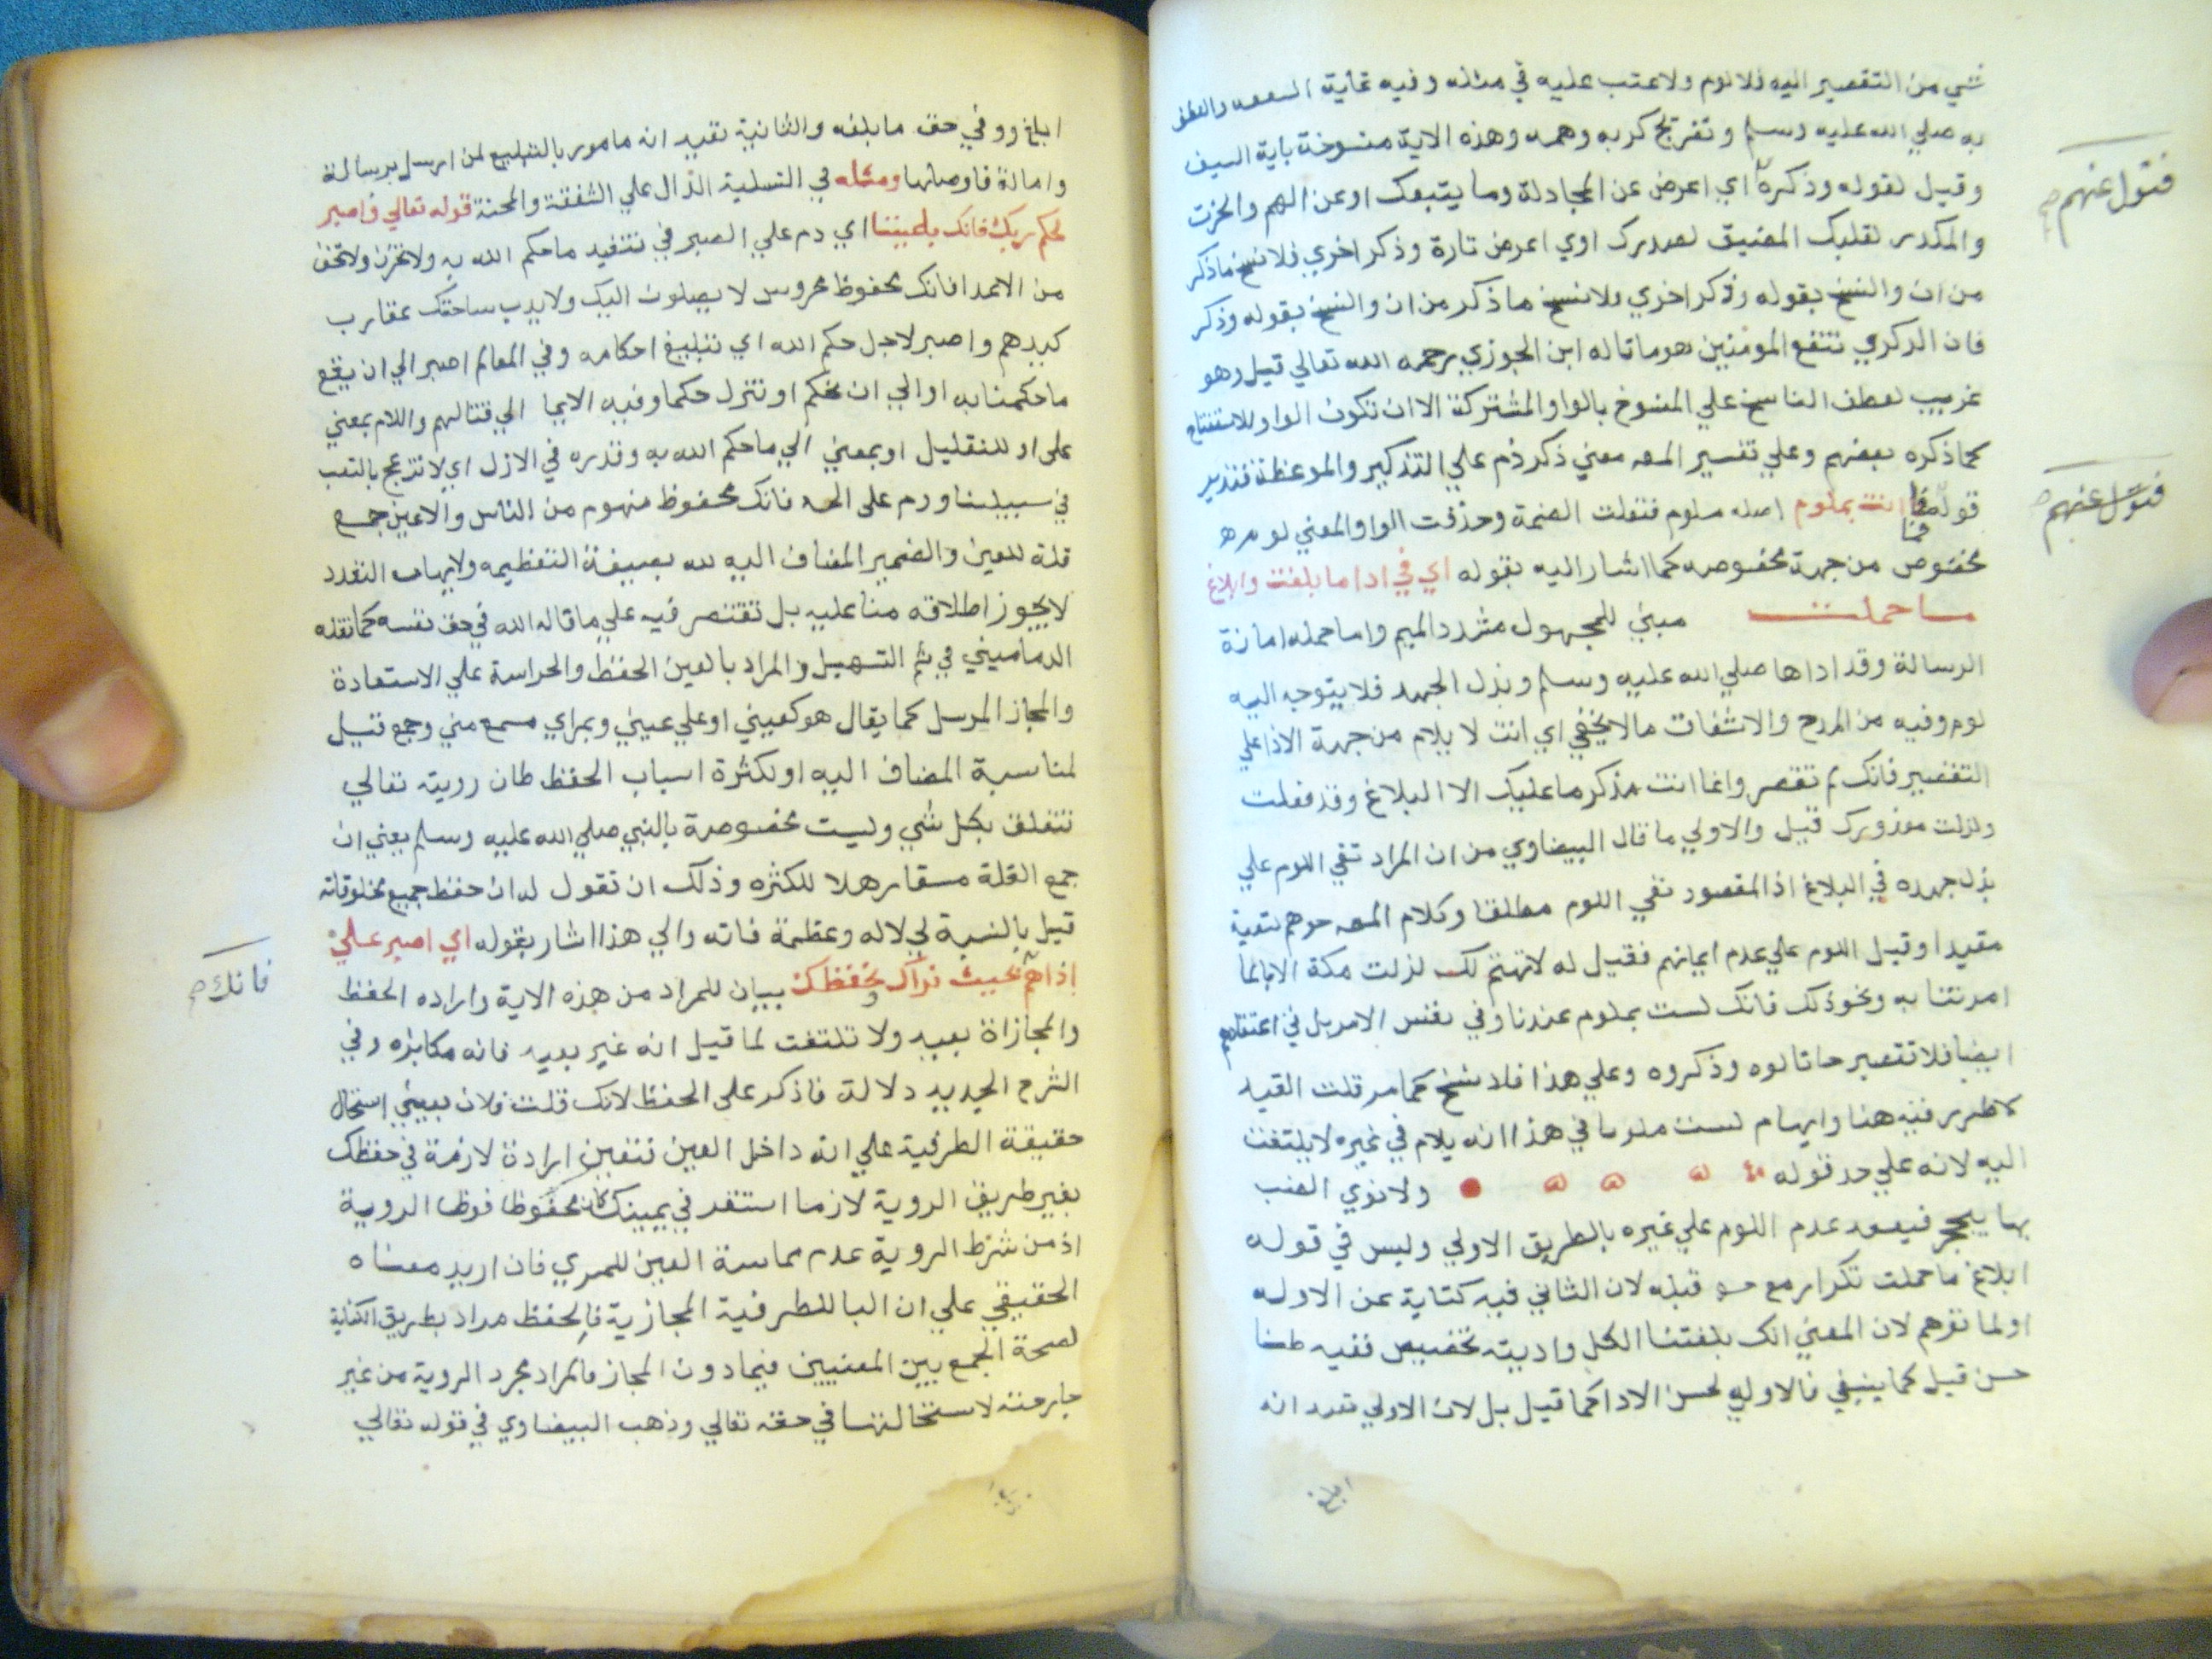 شي من التقصير اليه فلا لوم ولا عتب عليه في مثله وفيه غاية الشفقه والعطف
به صلي الله عليه وسلم وتفريج كربه وهمه وهذه الاية منسوخة باية السيف
فتول عنهم
وقيل لقوله وذكر اي اعرض عن المجادلة وما يتبعك او عن الهم والحزن
والمكدر لقلبك المضيق لصدرك اوي اعرض تارة وذكر اخري فلا نسخ ما ذكر
من ان والنسخ بقوله وذكر اخري ولا نسخ ما ذكر من ان والنسخ بقوله وذكر
فان الذكري تنفع المومنين هو ما قاله ابن الجوزي رحمه الله تعالي قيل وهو
غريب لعطف الناسخ علي المنسوخ بالواو المشتركة الا ان تكون الواو للاستفتاح
كما ذكره بعضهم وعلي تفسير المصه معني ذكر دم علي التذكير والموعظة فتدبر
فتول عنهم
قوله فما انت بملوم اصله ملووم فنقلت الضمة وحذفت الواو والمعني لو
مخصوص من جهة مخصوصه كما اشار اليه بقوله اي في ادا ما بلغت وابلاغ
ما حملت مبني للمجهول مشدد الميم واما حمله امانة
الرسالة وقد اداها صلي الله عليه وسلم وبذل الجهد فلا يتوجه اليه
لوم وفيه من المدح والاشفات ما لا يخفي اي انت لا يلام من جهة الاذا علي
التقصير فانك لم تقصر وانما انت مذكر ما عليك الا البلاغ وقد فعلت
ولزلت قيل والاولي ما قال البيضاوي من ان المراد نفي اللوم علي
بذل جهده في البلاغ اذ المقصود نفي اللوم مطلقا وكلام المصه
مقيدا وقيل اللوم علي عدم ايمانهم فقيل له لا تهتم لك لزلت مكة الا بالما
امرتنا به ونحو ذلك فانك لست بملوم عندنا وفي نفس الامر بل في اعتقادهم
ايضا فلا تتصير حاتا لوه وذكروه وعلي هذا فلا نسخ كما مر قلت القيد
لا ضرر فيه هنا وايهام لست ملوما في هذا انه يلام في غيره لا يلتفت
اليه لانه علي حد قوله ولا نوي الضب
بها ينجحر فيفيد عدم اللوم علي غيره بالطريق الاولي وليس في قوله
ابلاغ ما حملت تكرار مع قبله لان الثاني فيه كناية عن الاوله
او لما توهم لان المعني انك بلغتنا الكل واديته تخصيص ففيه طضا
حسن قيل كما ينبغي فالاولي لحسن الادا كما قيل بل لان الاولي تفيد انه
ابلغ
ابلغ وفي حق ما بلغه والثانية تفيد انه مامور بالتبليغ لمن ارسل برسالة
وامالة فاوصلها ومثله في التسلية الدال علي الشفقة والمحنة قوله تعالي واصبر
لحكم ربك فانك باعيننا اي دم علي الصبر في تنفيذ ما حكم الله به ولا تحزن ولا تخف
من الاعدا فانك محفوظ محروس لا يصلون اليك ولا يدب ساحتك عقارب
كيدهم واصبر لاجل حكم الله اي تبليغ احكامه وفي المعالم اصبر الي ان يقع
ما حكمنا به او الي ان نحكم او تنزل حكما وفيه الايما الي قتالهم واللام بمعني
علي او للتقليل او بمعني الي ما حكم الله به وقدره في الازل اي لا تنزعج بالتعب
في سبيلنا ودم علي الحمد فانك محفوظ منهوم من الناس والاعين جمع
قلة للعين والضمير المضاف اليه لله بصيغة التعظيمه ولايهام التعدد
لا يجوز اطلاقه منا عليه بل تقتصر فيه علي ما قاله الله في حق نفسه كما نقله
الدماميني في شم التسهيل والمراد بالعين الحفظ والحراسة علي الاستعارة
والمجاز المرسل كما يقال هو كعيني او علي عيني وبمراي مسمع مني وجمع قيل
لمناسبة المضاف اليه او لكثرة اسباب الحفظ طان رويته تعالي
تتعلق بكل شي وليست مخصوصة بالنبي صلي الله عليه وسلم يعني ان
جمع القلة مستعار هلا للكثره وذلك ان تقول لدان حفظ جميع مخلوقاته
قيل بالنسبة لجلاله وعظمة فاته والي هذا اشار بقوله اي اصبر علي
اذاهم بحيث نراك ونحفظك بيان للمراد من هذه الاية واراده الحفظ
فانك
والمجازاة بعيد ولا تلتفت لما قيل انه غير بعيد فانه مكابره وفي
الشرح الجديد دلالة فاذكر علي الحفظ لانك قلت فلان بعيني استحال
حقيقة الظرفية علي انه داخل العين فتعين ارادة لازمة في حفظك
بغير طريق الروية لازما استقر في يمينك كان محفوظا فوظا الروية
اذ من شرط الروية عدم مماسة العين للمري فان اريد معناه
الحقيقي علي ان البا للظرفية المجازية فالحفظ مراد بطريق الكناية
لصحة الجمع بين المعنيين فيما دون المجاز فالمراد مجرد الروية من غير
جارحته لاستحالتها في حقه تعالي وذهب البيضاوي في قوله تعالي